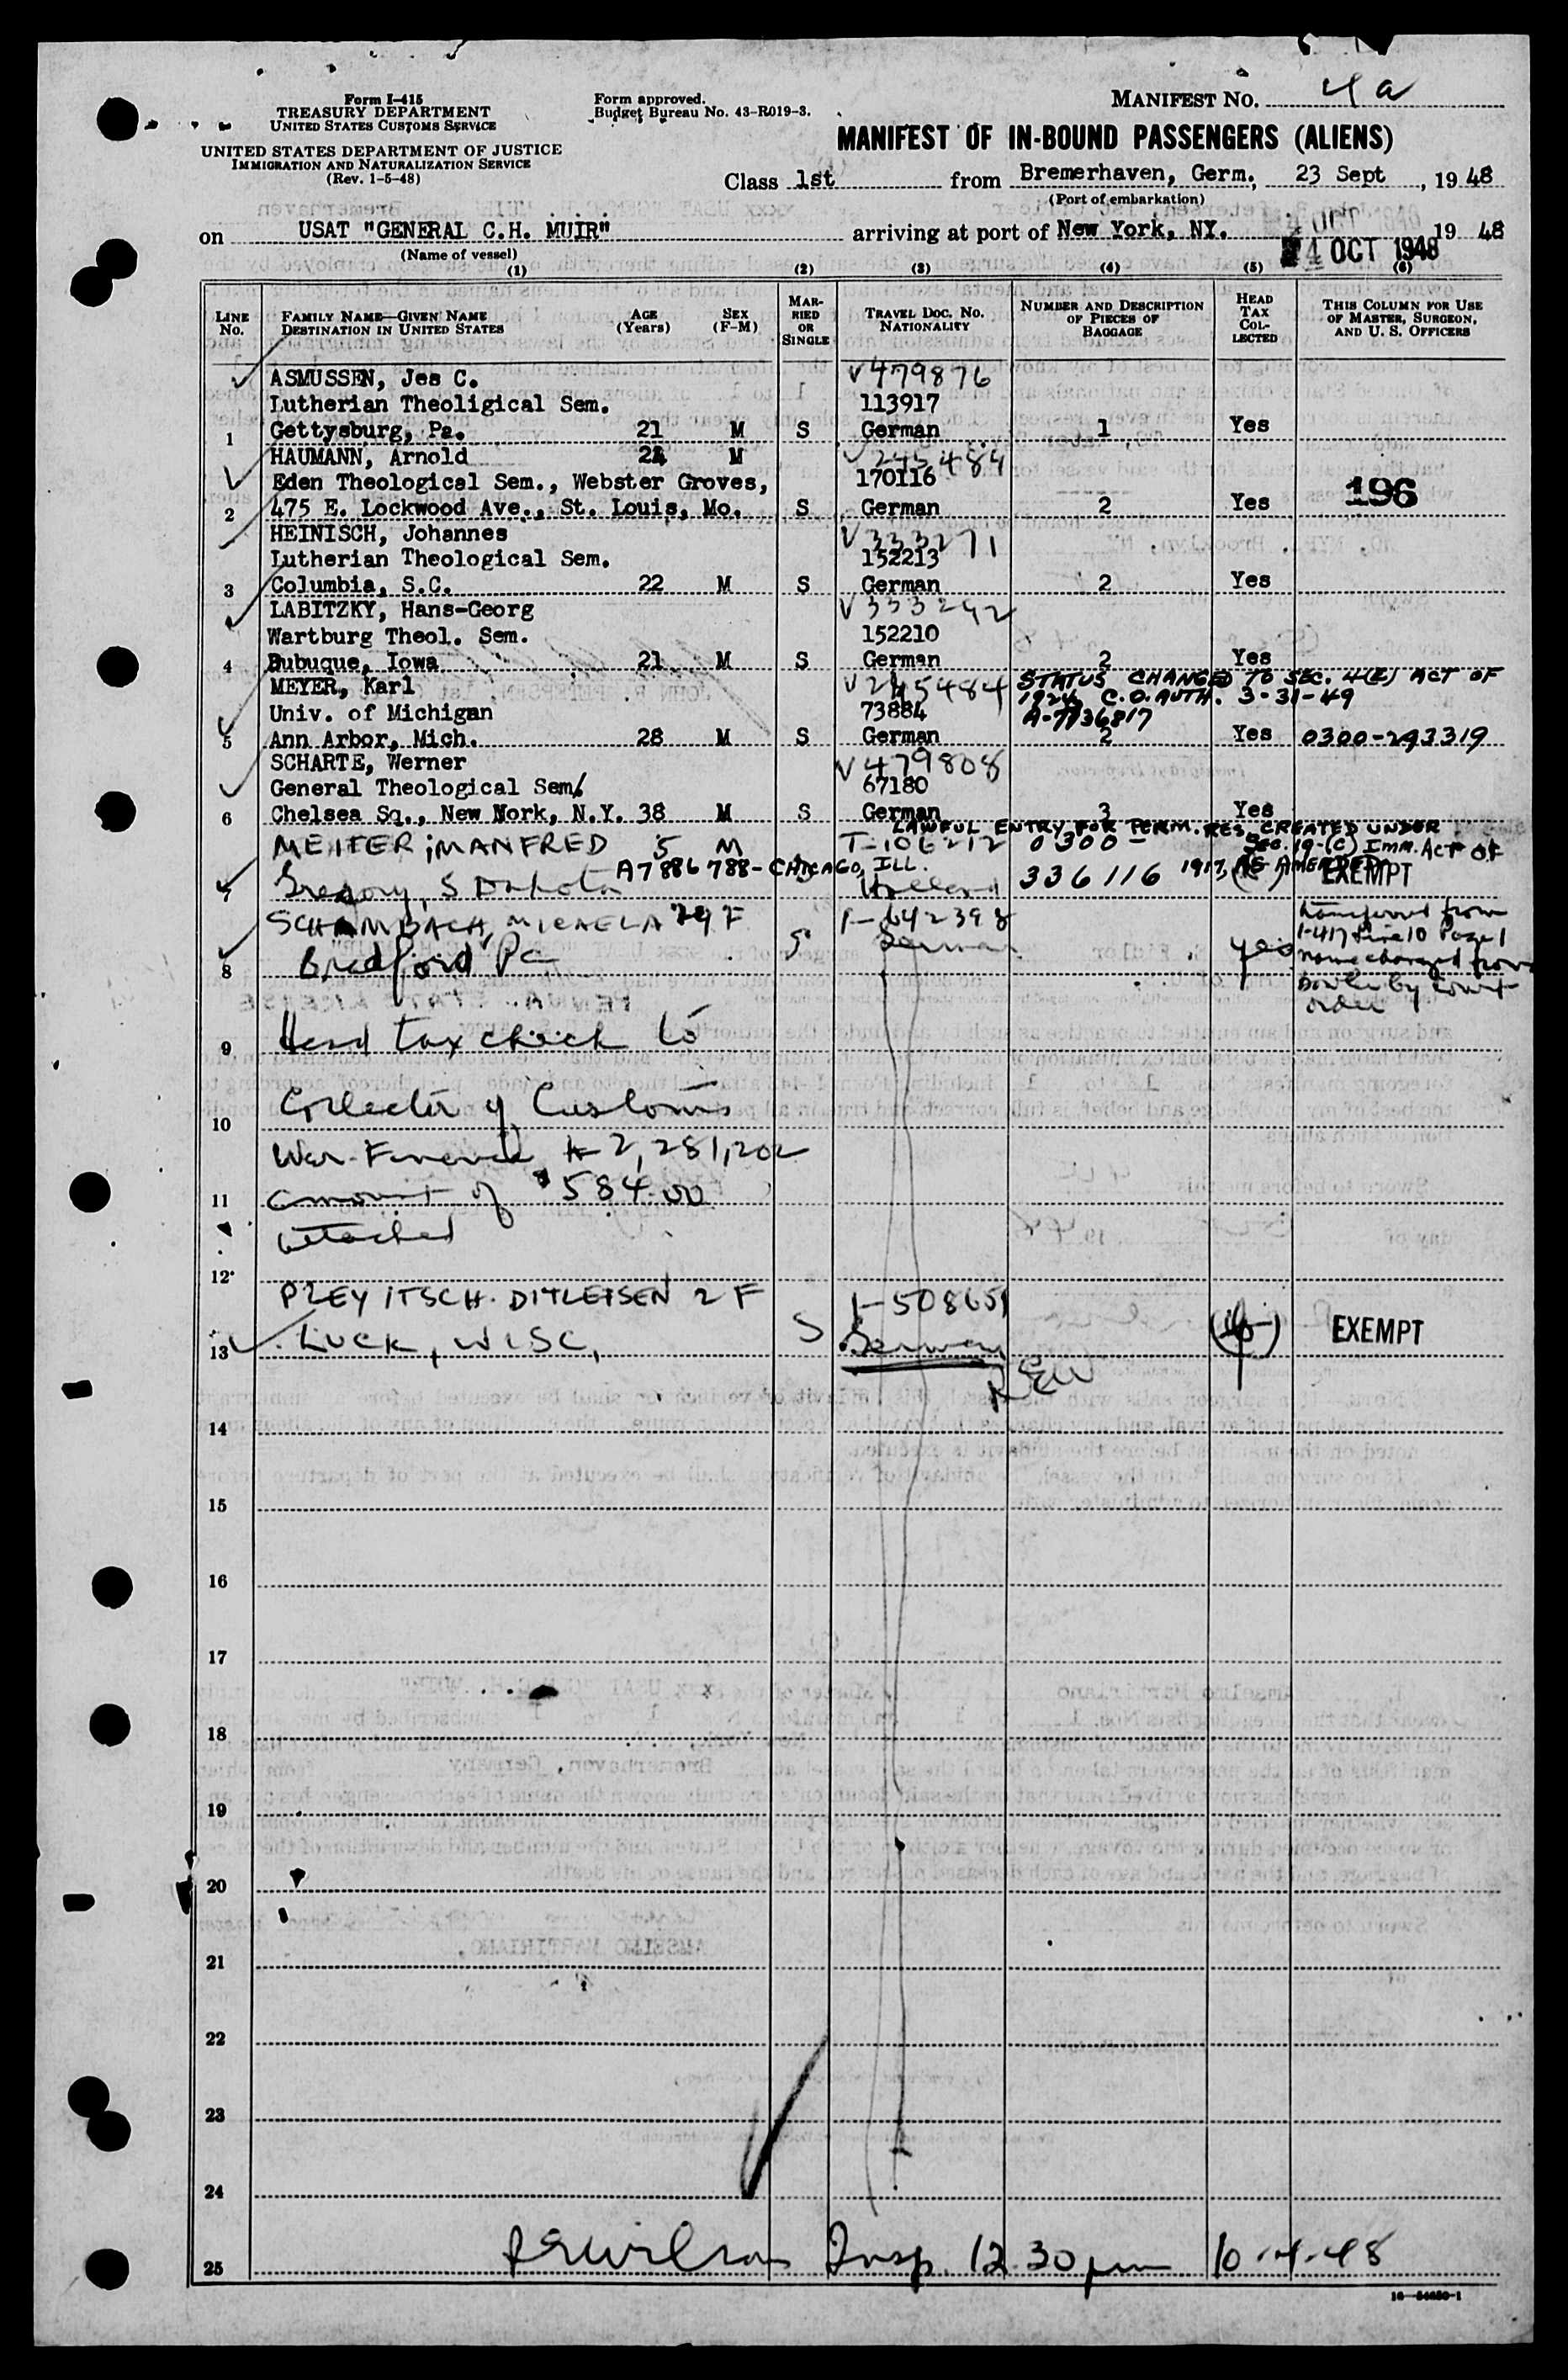 Form I-415
TREASURY DEPARTMENT
UNITED STATES CUSTOMS SERVICE
UNITED STATES DEPARTMENT OF JUSTICE
IMMIGRATION AND NATURALIZATION SERVICE
(Rev. 1-5-48)
Form approved.
Budget Bureau No. 43-R019-3.
MANIFEST NO. 4a
MANIFEST OF IN-BOUND PASSENGERS (ALIENS)
Class 1st from Bremerhaven, Germ., 23 Sept, 1948
(Port of embarkation)
on USAT "GENERAL C.H. MUIR" arriving at port of New York, NY. 4 OCT 1948 19 48
(Name of vessel)
(1) (2) (3) (4) (5) (6)
LINE No. FAMILY NAME—GIVEN NAME DESTINATION IN UNITED STATES AGE (Years) SEX (F-M) MARRIED OR SINGLE TRAVEL DOC. NO. NATIONALITY NUMBER AND DESCRIPTION OF PIECES OF BAGGAGE HEAD TAX COLLECTED THIS COLUMN FOR USE OF MASTER, SURGEON, AND U. S. OFFICERS
ASMUSSEN, Jes C. V479876
Lutherian Theoligical Sem. 113917
1 Gettysburg, Pa. 21 M S German 1 Yes
HAUMANN, Arnold M V245484
Eden Theological Sem., Webster Groves, 170116 196
2 475 E. Lockwood Ave., St. Louis, Mo. S German 2 Yes
HEINISCH, Johannes V333271
Lutherian Theological Sem. 152213
3 Columbia, S.C. 22 M S German 2 Yes
LABITZKY, Hans-Georg V333292
Wartburg Theol. Sem. 152210
4 Dubuque, Iowa 21 M S German 2 Yes
MEYER, Karl V245484 STATUS CHANGED TO SEC. 4(E) ACT OF
Univ. of Michigan 73884 1924 C.O. AUTH. 3-31-49
A-7736817
5 Ann Arbor, Mich. 28 M S German 2 Yes 0300-293319
SCHARTE, Werner V479808
General Theological Sem/ 67180
6 Chelsea Sq., New Nork, N.Y. 38 M S German 3 Yes
LAWFUL ENTRY FOR PERM. RES. CREATED UNDER
MEITER; MANFRED 5 M T-106212 0300- SEC. 19-(C) IMM. ACT OF
A7886788-CHICAGO, ILL. 1917, AS AMENDED
7 Gregory, S Dakota Holland 336116 EXEMPT
SCHAMBACH, MICAELA 29 F I-642398 transferred from
8 Bradford Pa S German yes I-417 Line 10 Page 1
name changed from
by court
order
9 Head tax check to
10 Collector of Customs
War Finance # 2,281,202
11 amount of $584.00
attached
12
PREYITSCH. DITLEFSEN 2 F I-508651
13 LUCK, WISC, S German EXEMPT
14
15
16
17
18
19
20
21
22
23
24
25 Insp. 12.30 pm 10-4-48
16—54650-1